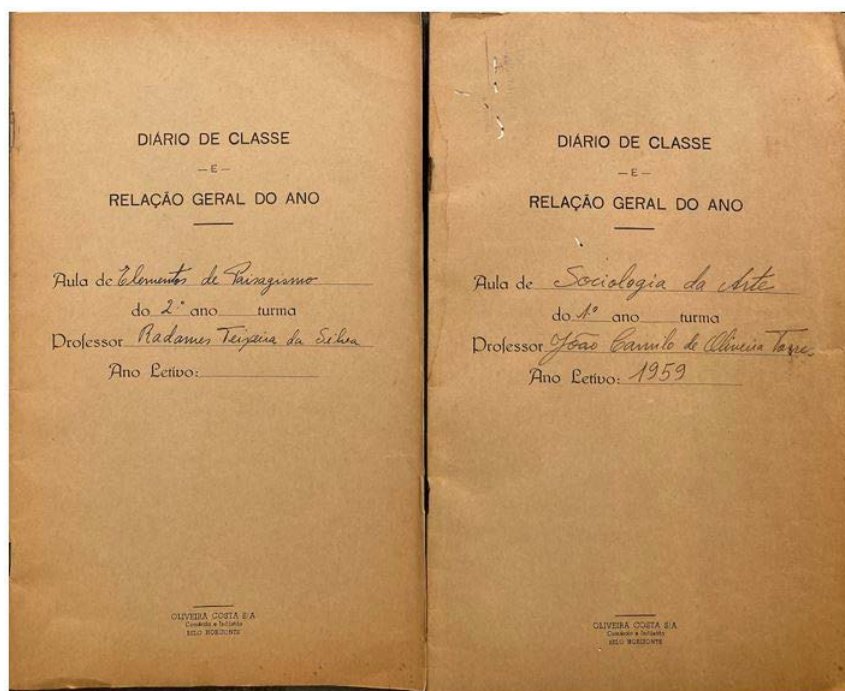 DIÁRIO DE CLASSE
— E —
RELAÇÃO GERAL DO ANO
Aula de Elementos de Paisagismo
do 2º ano turma
Professor Radames Teixeira da Silva
Ano Letivo:
OLIVEIRA COSTA S/A
Comércio e Indústria
BELO HORIZONTE
DIÁRIO DE CLASSE
— E —
RELAÇÃO GERAL DO ANO
Aula de Sociologia da Arte
do 1º ano turma
Professor João Camilo de Oliveira Torres
Ano Letivo: 1959
OLIVEIRA COSTA S/A
Comércio e Indústria
BELO HORIZONTE